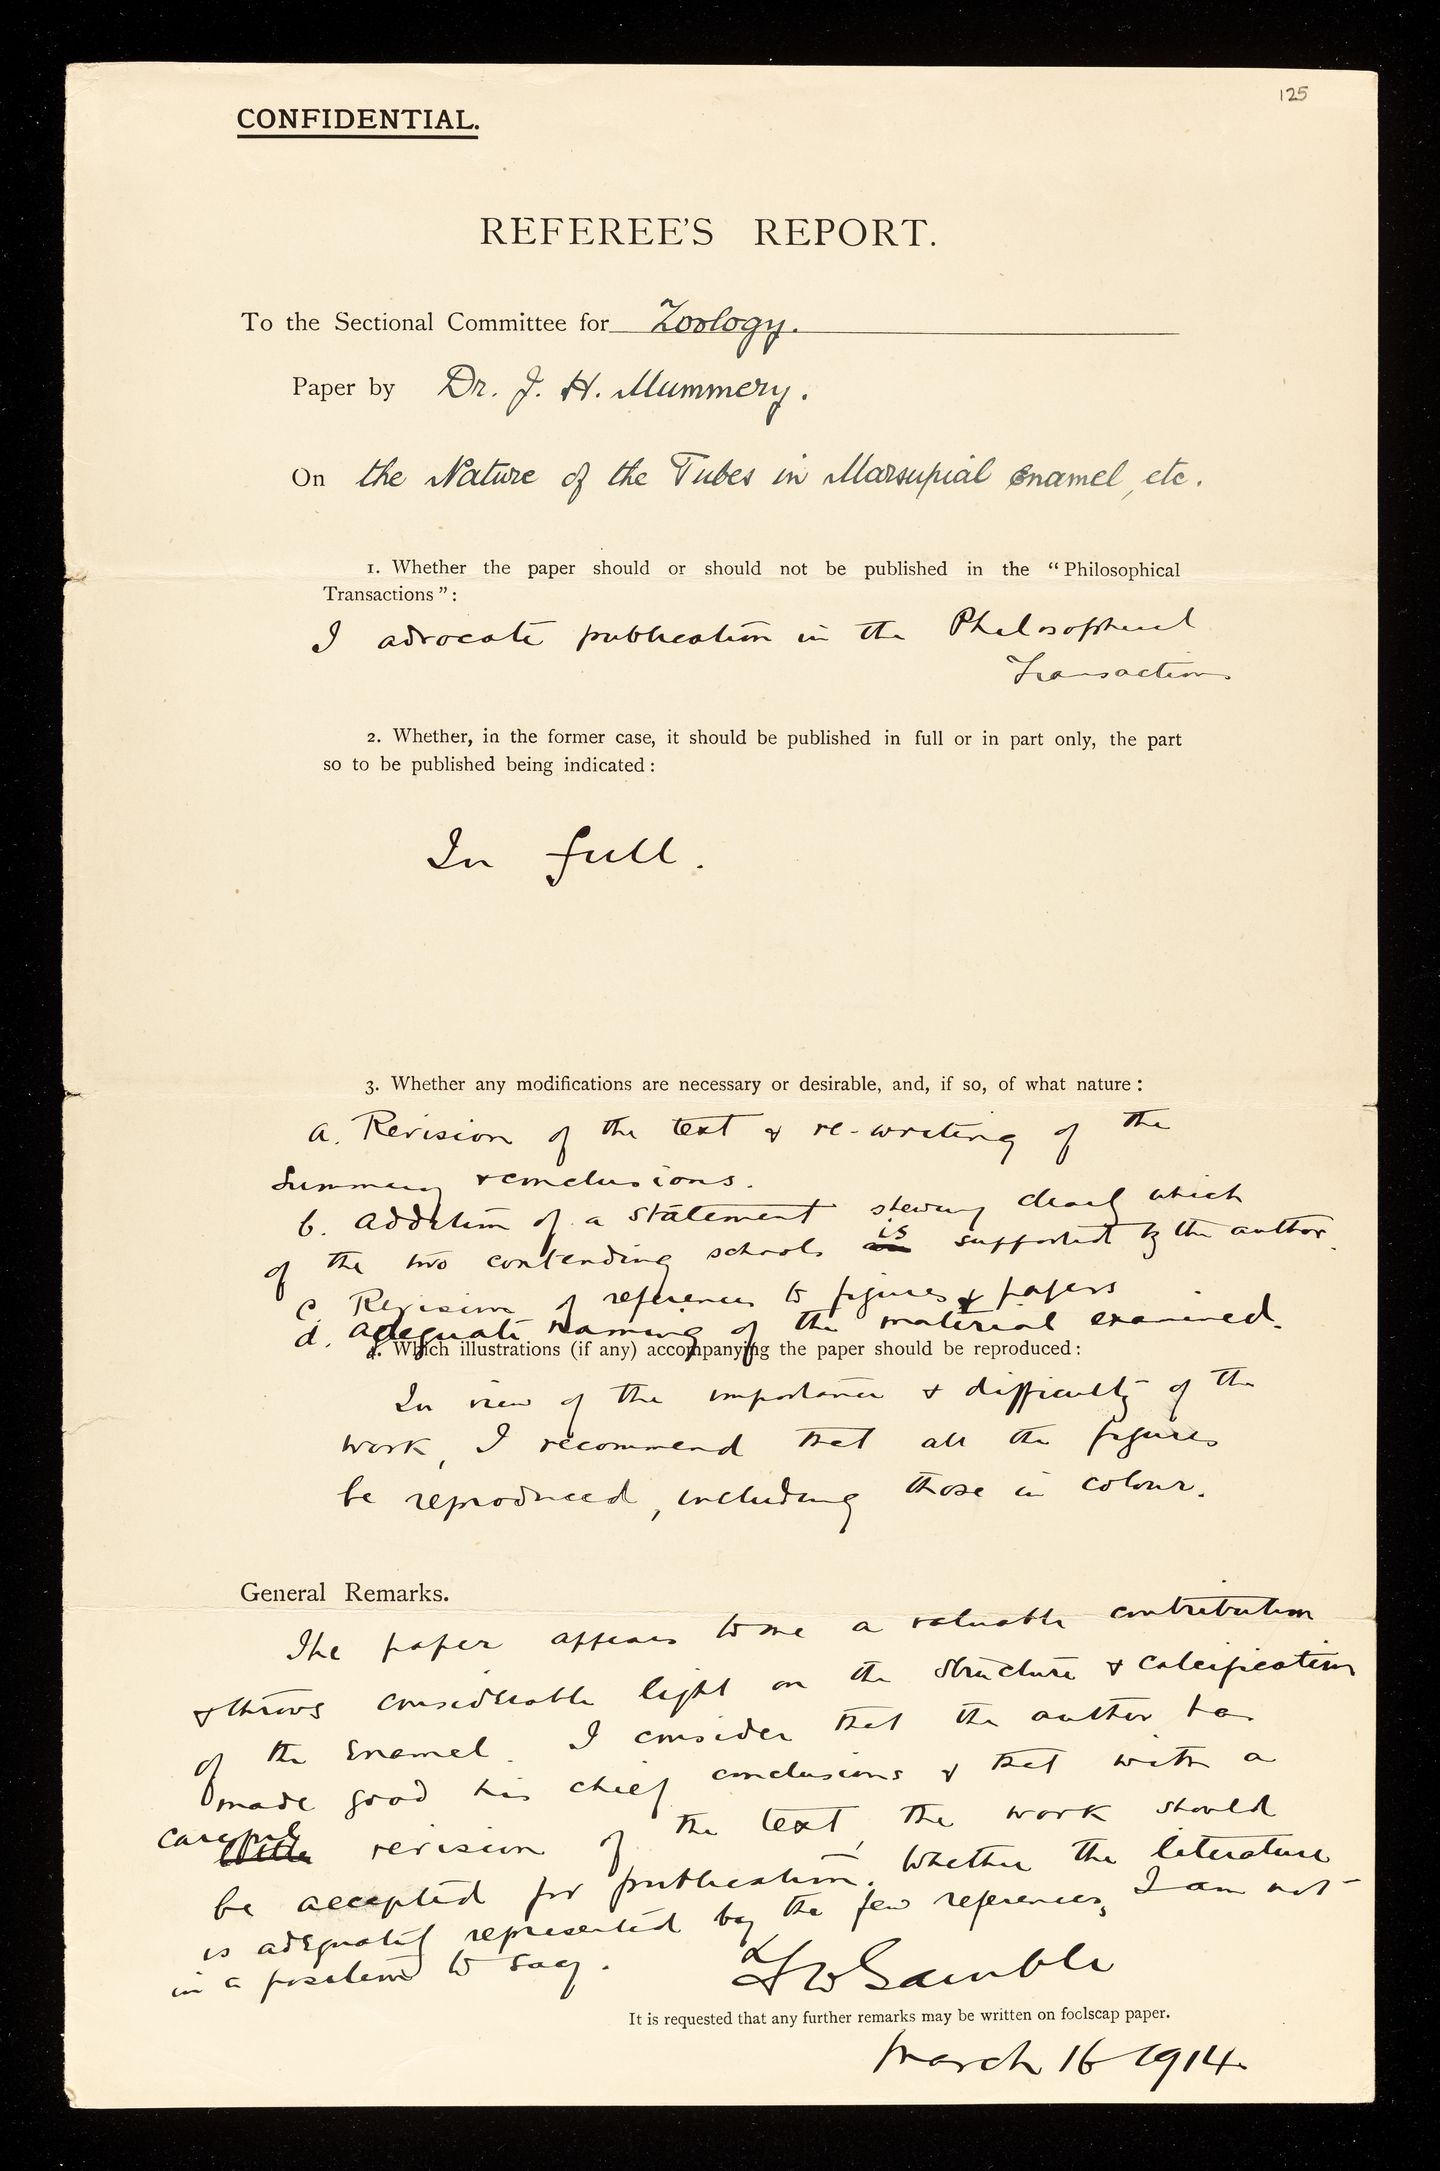 125
CONFIDENTIAL.
REFEREE'S REPORT.
To the Sectional Committee for Zoology.
Paper by Dr. J. H. Mummery.
On the Nature of the Tubes in Marsupial Enamel, etc.
1. Whether the paper should or should not be published in the "Philosophical
Transactions":
I advocate publication in the Philosophical
Transactions
2. Whether, in the former case, it should be published in full or in part only, the part
so to be published being indicated:
In full.
3. Whether any modifications are necessary or desirable, and, if so, of what nature:
a. Revision of the text & re-writing of the
summary & conclusions.
b. Addition of a statement shewing clearly which
of the two contending schools is supported by the author.
c. Revision of references to figures & papers
d. Adequate naming of the material examined.
4. Which illustrations (if any) accompanying the paper should be reproduced:
In view of the importance & difficulty of the
work, I recommend that all the figures
be reproduced, including those in colour.
General Remarks.
The paper appears to me a valuable contribution
& throws considerable light on the structure & calcification
of the Enamel. I consider that the author has
made good his chief conclusions & that with a
careful revision of the text, the work should
be accepted for publication. Whether the literature
is adequately represented by the few references, I am not
in a position to say.
F W Gamble
It is requested that any further remarks may be written on foolscap paper.
March 16 1914.